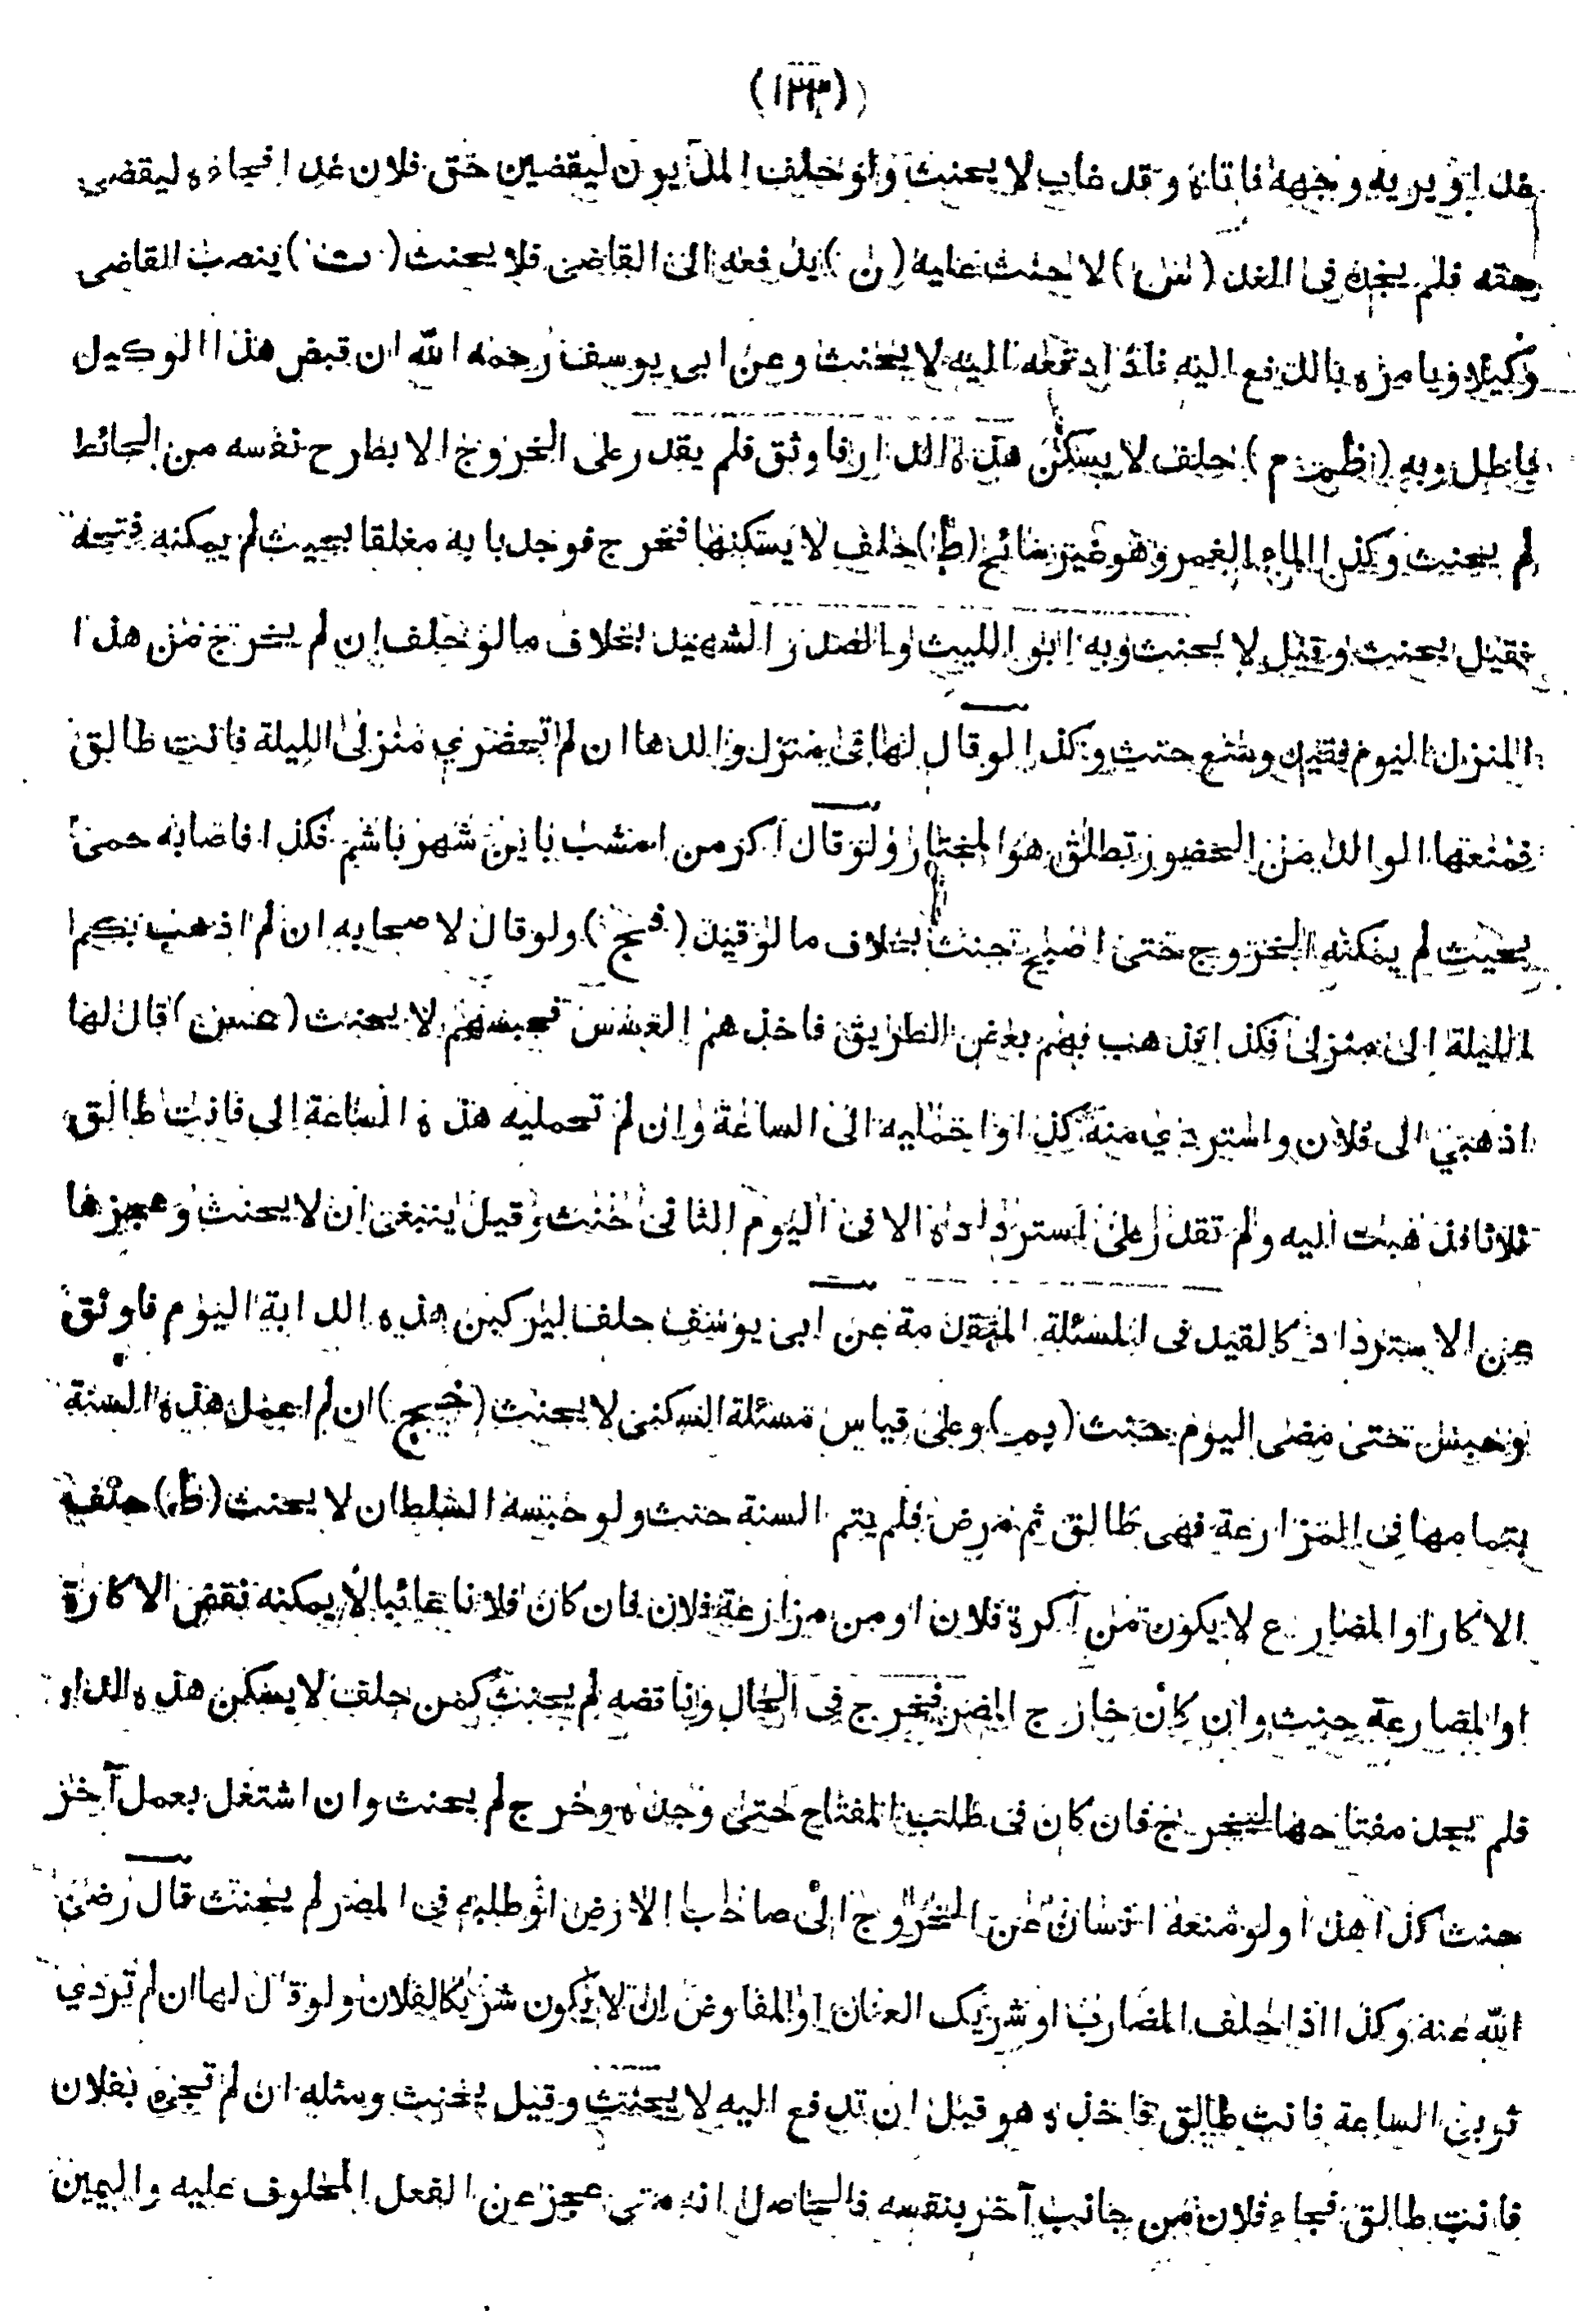 (١٣٣)
غدا او يريه وجهه فاتاه وقد غاب لا يحنث ولو حلف المديون ليقضين حق فلان غدا فجاءه ليقضي
حقه فلم يجده في الغد (س) لا حنث عليه (ن) يدفعه الى القاضى فلا يحنث (ت) ينصب القاضى
وكيلا ويامره بالدفع اليه فاذا دفعه اليه لا يحنث وعن ابى يوسف رحمه الله ان قبض هذا الوكيل
باطل وبه (ظم م) حلف لا يسكن هذه الدار فاوثق فلم يقدر على الخروج الا بطرح نفسه من الحائط
لم يحنث وكذا الماء الغمر وهو غير سائح (ط) حلف لا يسكنها فخرج فوجد بابه مغلقا بحيث لم يمكنه فتحه
فقيل يحنث وقيل لا يحنث وبه ابو الليث والصدر الشهيد بخلاف ما لو حلف ان لم يخرج من هذا
المنزل اليوم فقيد ومنع حنث وكذا لو قال لها فى منزل والدها ان لم تحضري منزلى الليلة فانت طالق
فمنعها الوالد من الحضور تطلق هو المختار ولو قال اكر من امشب باين شهر باشم فكذا فاصابه حمى
بحيث لم يمكنه الخروج حتى اصبح حنث بخلاف ما لو قيد (فج) ولو قال لاصحابه ان لم اذهب بكم
الليلة الى منزلى فكذا فذهب بهم بعض الطريق فاخذهم العسس فحبسهم لا يحنث (عس) قال لها
اذهبي الى فلان واستردي منه كذا واحمليه الى الساعة وان لم تحمليه هذه الساعة الى فانت طالق
ثلاثا فذهبت اليه ولم تقدر على استرداده الا فى اليوم الثانى حنث وقيل ينبغى ان لا يحنث وعجزها
عن الاسترداد كالقيد فى المسئلة المتقدمة عن ابى يوسف حلف ليركبن هذه الدابة اليوم فاوثق
وحبس حتى مضى اليوم حنث (بم) وعلى قياس مسئلة السكنى لا يحنث (خج) ان لم اعمل هذه السنة
بتمامها فى المزارعة فهى طالق ثم مرض فلم يتم السنة حنث ولو حبسه السلطان لا يحنث (ظم) حلف
الاكار او المضارع لا يكون من اكرة فلان او من مزارعة فلان فان كان فلانا غائبا لا يمكنه نقض الاكارة
او المضارعة حنث وان كان خارج المصر فخرج فى الحال وناقضه لم يحنث كمن حلف لا يسكن هذه الدار
فلم يجد مفتاحها ليخرج فان كان فى طلب المفتاح حتى وجده وخرج لم يحنث وان اشتغل بعمل آخر
حنث كذا هذا ولو منعه انسان عن الخروج الى صاحب الارض او طلبه فى المصر لم يحنث قال رضى
الله عنه وكذا اذا حلف المضارب او شريك العنان او المفاوض ان لا يكون شريكا لفلان ولو قال لها ان لم تردي
ثوبى الساعة فانت طالق فاخذه هو قبل ان تدفع اليه لا يحنث وقيل يحنث وسئله ان لم تجئ بفلان
فانت طالق فجاء فلان من جانب آخر بنفسه فالحاصل انه متى عجز عن الفعل المحلوف عليه واليمين